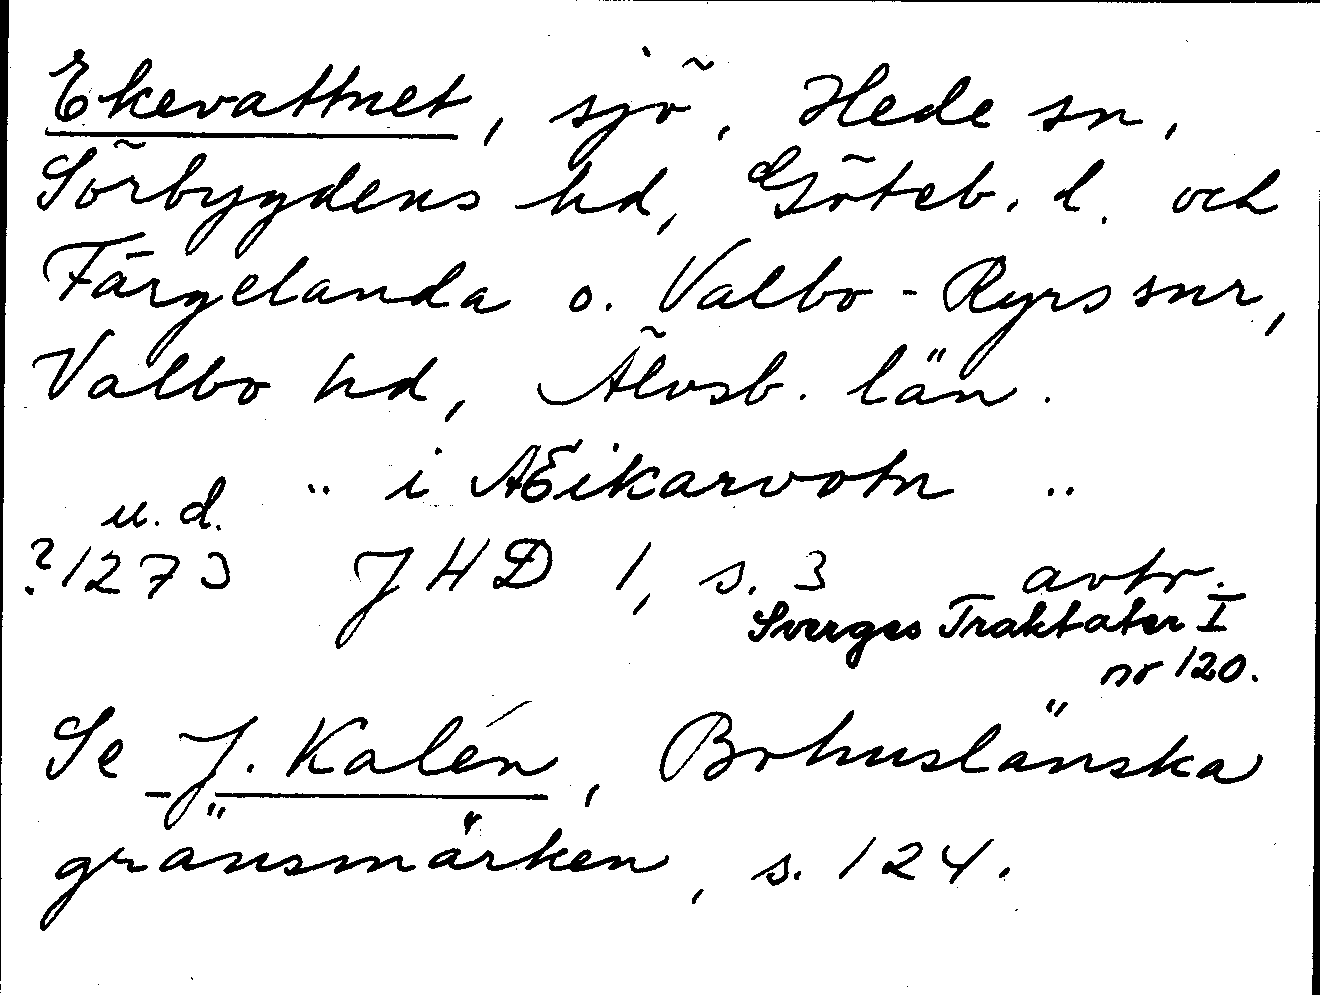 Ekevattnet, sjö, Hede sn,
Sörbygdens hd, Göteb. l. och
Färgelanda o. Valbo-Ryrs snr,
Valbo hd, Älvsb. län.
u.d. " i Æikarvotn "
?1273 JHD 1, s. 3 avtr.
Sverges Traktater I
nr 120.
Se J. Kalén, Bohuslänska
gränsmärken, s. 124.